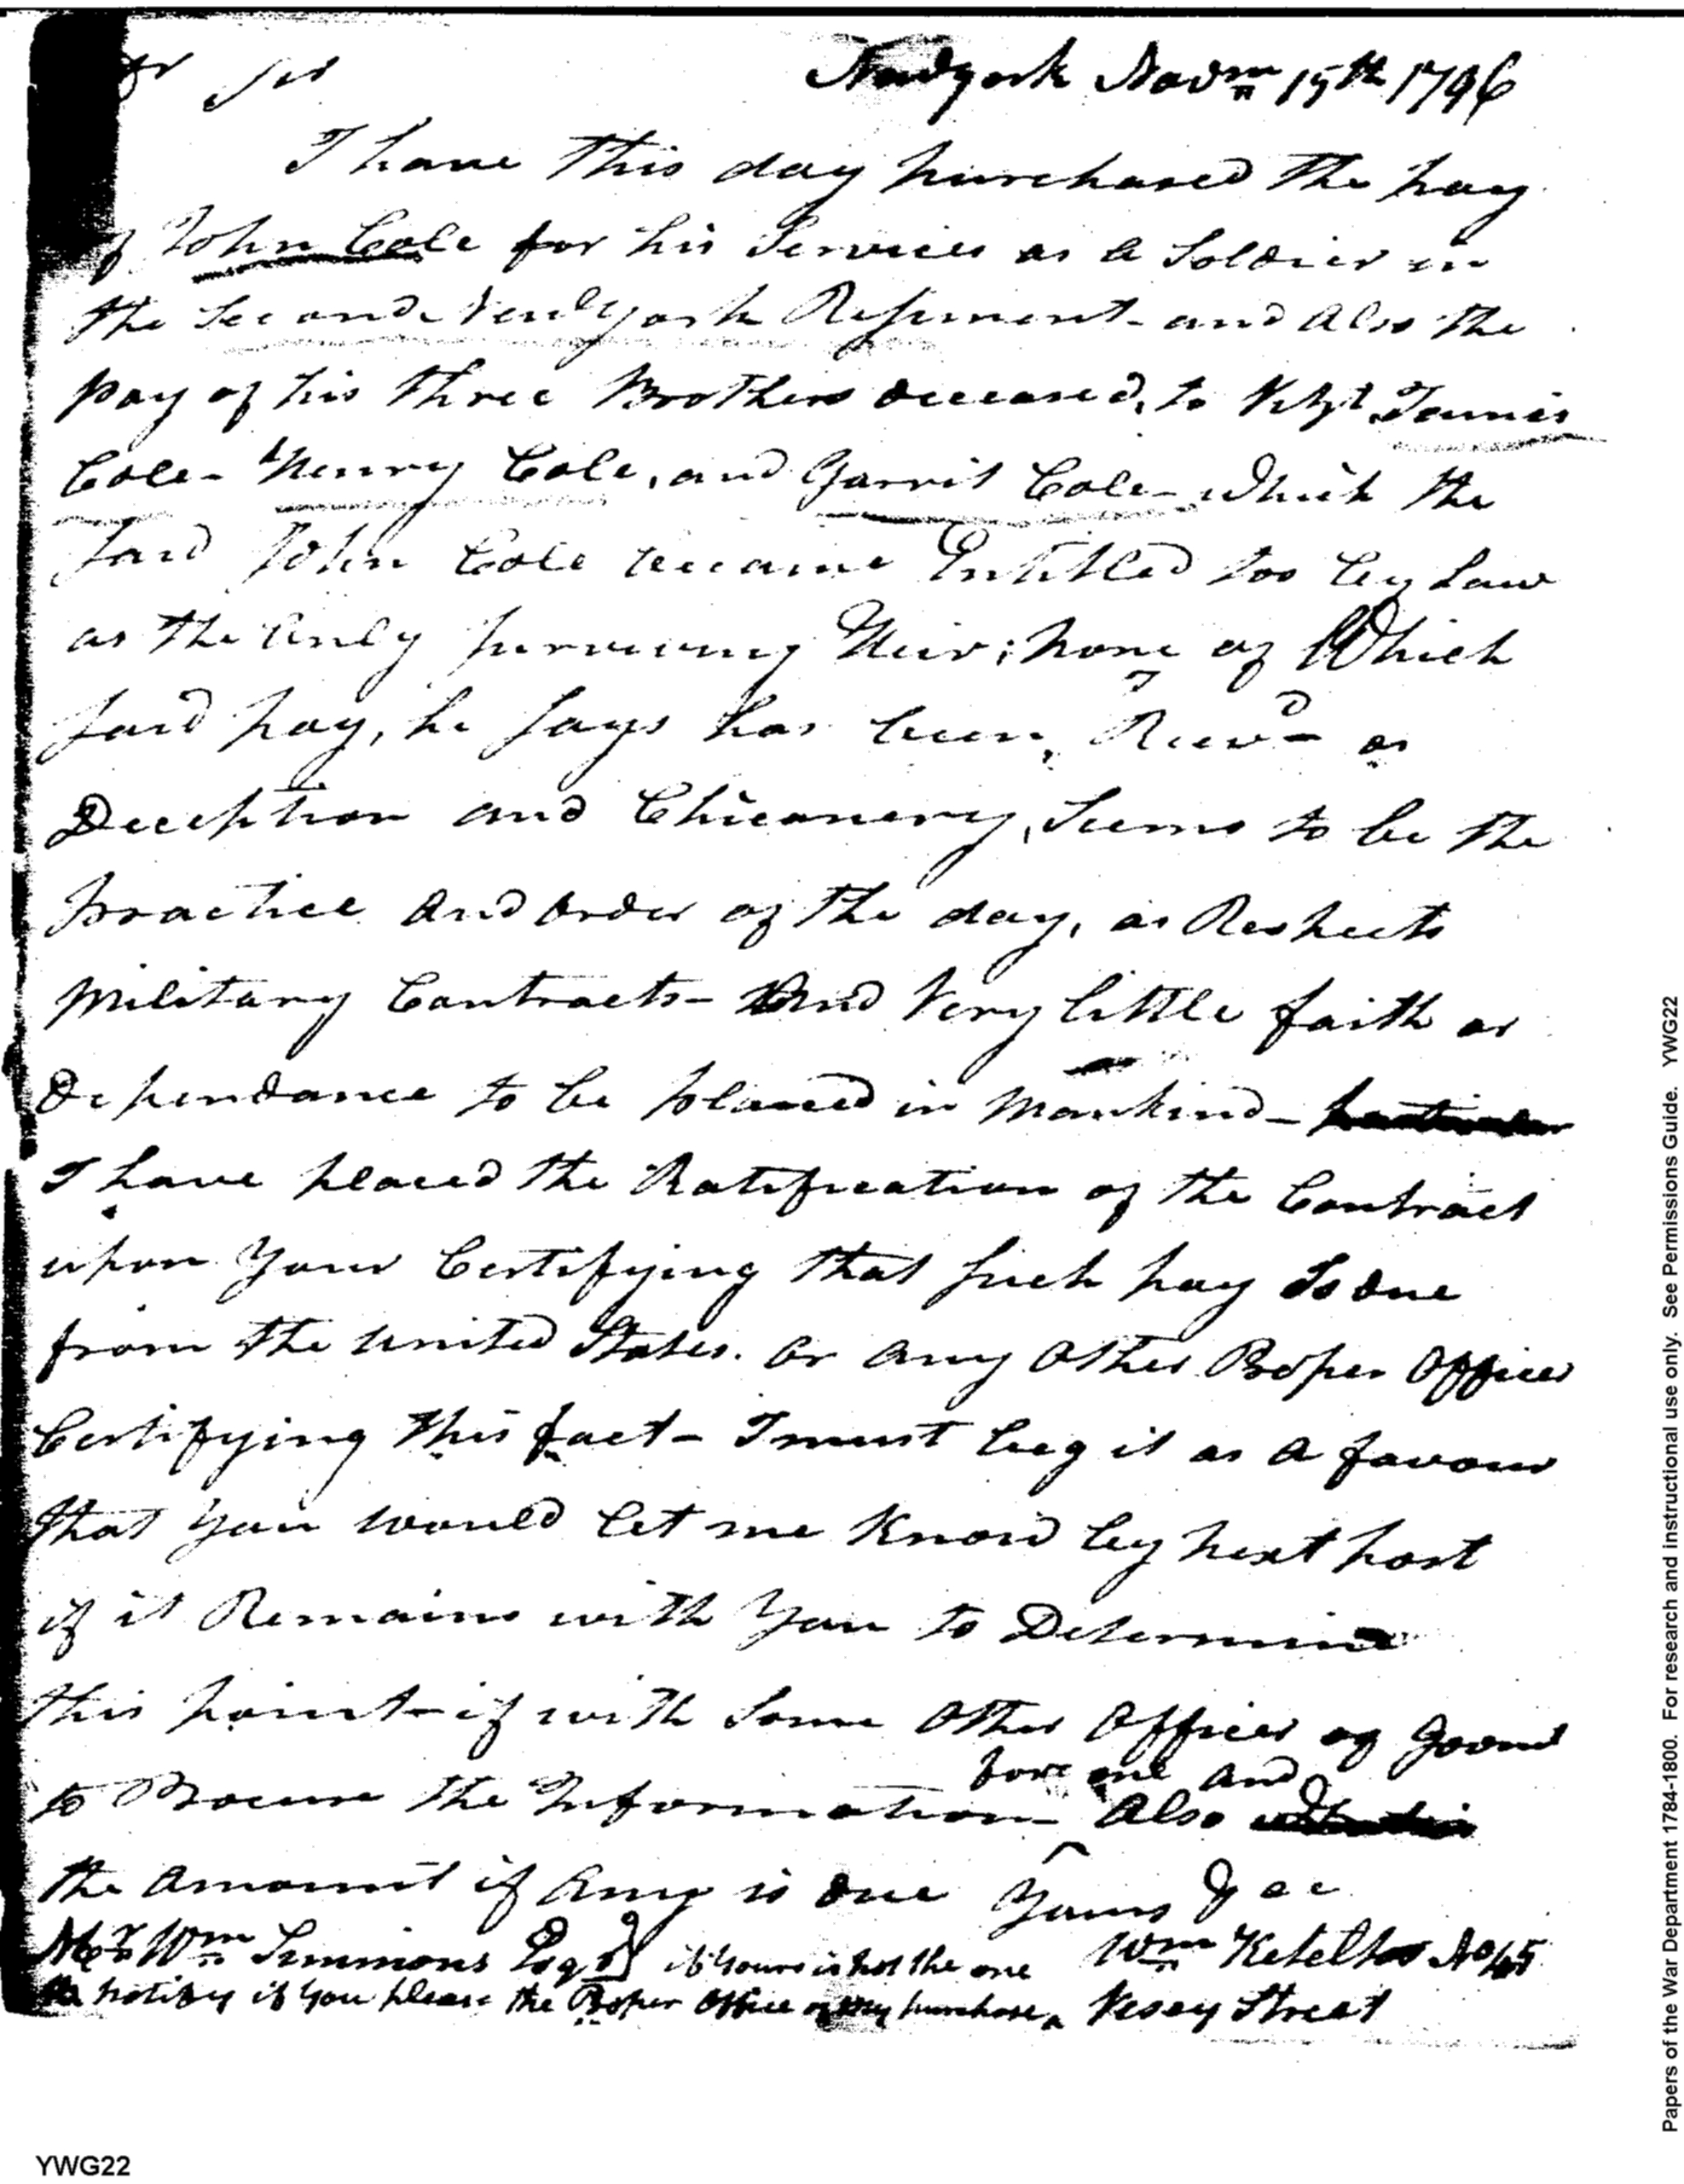 Sir Newyork Novm 15th 1796
I have this day purchased the pay
of John Cole for his Services as a Soldier in
the Second NewYork Regiment - and Also the
pay of his three Brothers deceased, to Wit James
Cole - Henry Cole, and Garrit Cole - which the
said John Cole became Entitled too by Law
as the only surviving Heir; none of Which
said pay, he says has been, Recvd as
Deception and Chicanery, Seems to be the
practice And order of the day, as Respects
Military Contracts - And Very little faith or
Dependance to be placed in Mankind -
I have placed the Ratification of the Contract
upon Your Certifying that such pay Is due
from the united States. or any other Proper Officer
Certifying this fact - I must beg it as a favour
that you would let me Know by next post
if it Remains with You to Determine
this point - if with Some Other Officer of Govmt
for me and
to Procure the Information - Also
the Amount if Any is due Yours &cc
Mr Wm Simmons Esqr } if Yours is not the one Wm Keteltas No 45
notify if you please the Proper Office of my purchase, Vesey Street
Papers of the War Department 1784-1800. For research and instructional use only. See Permissions Guide. YWG22
YWG22